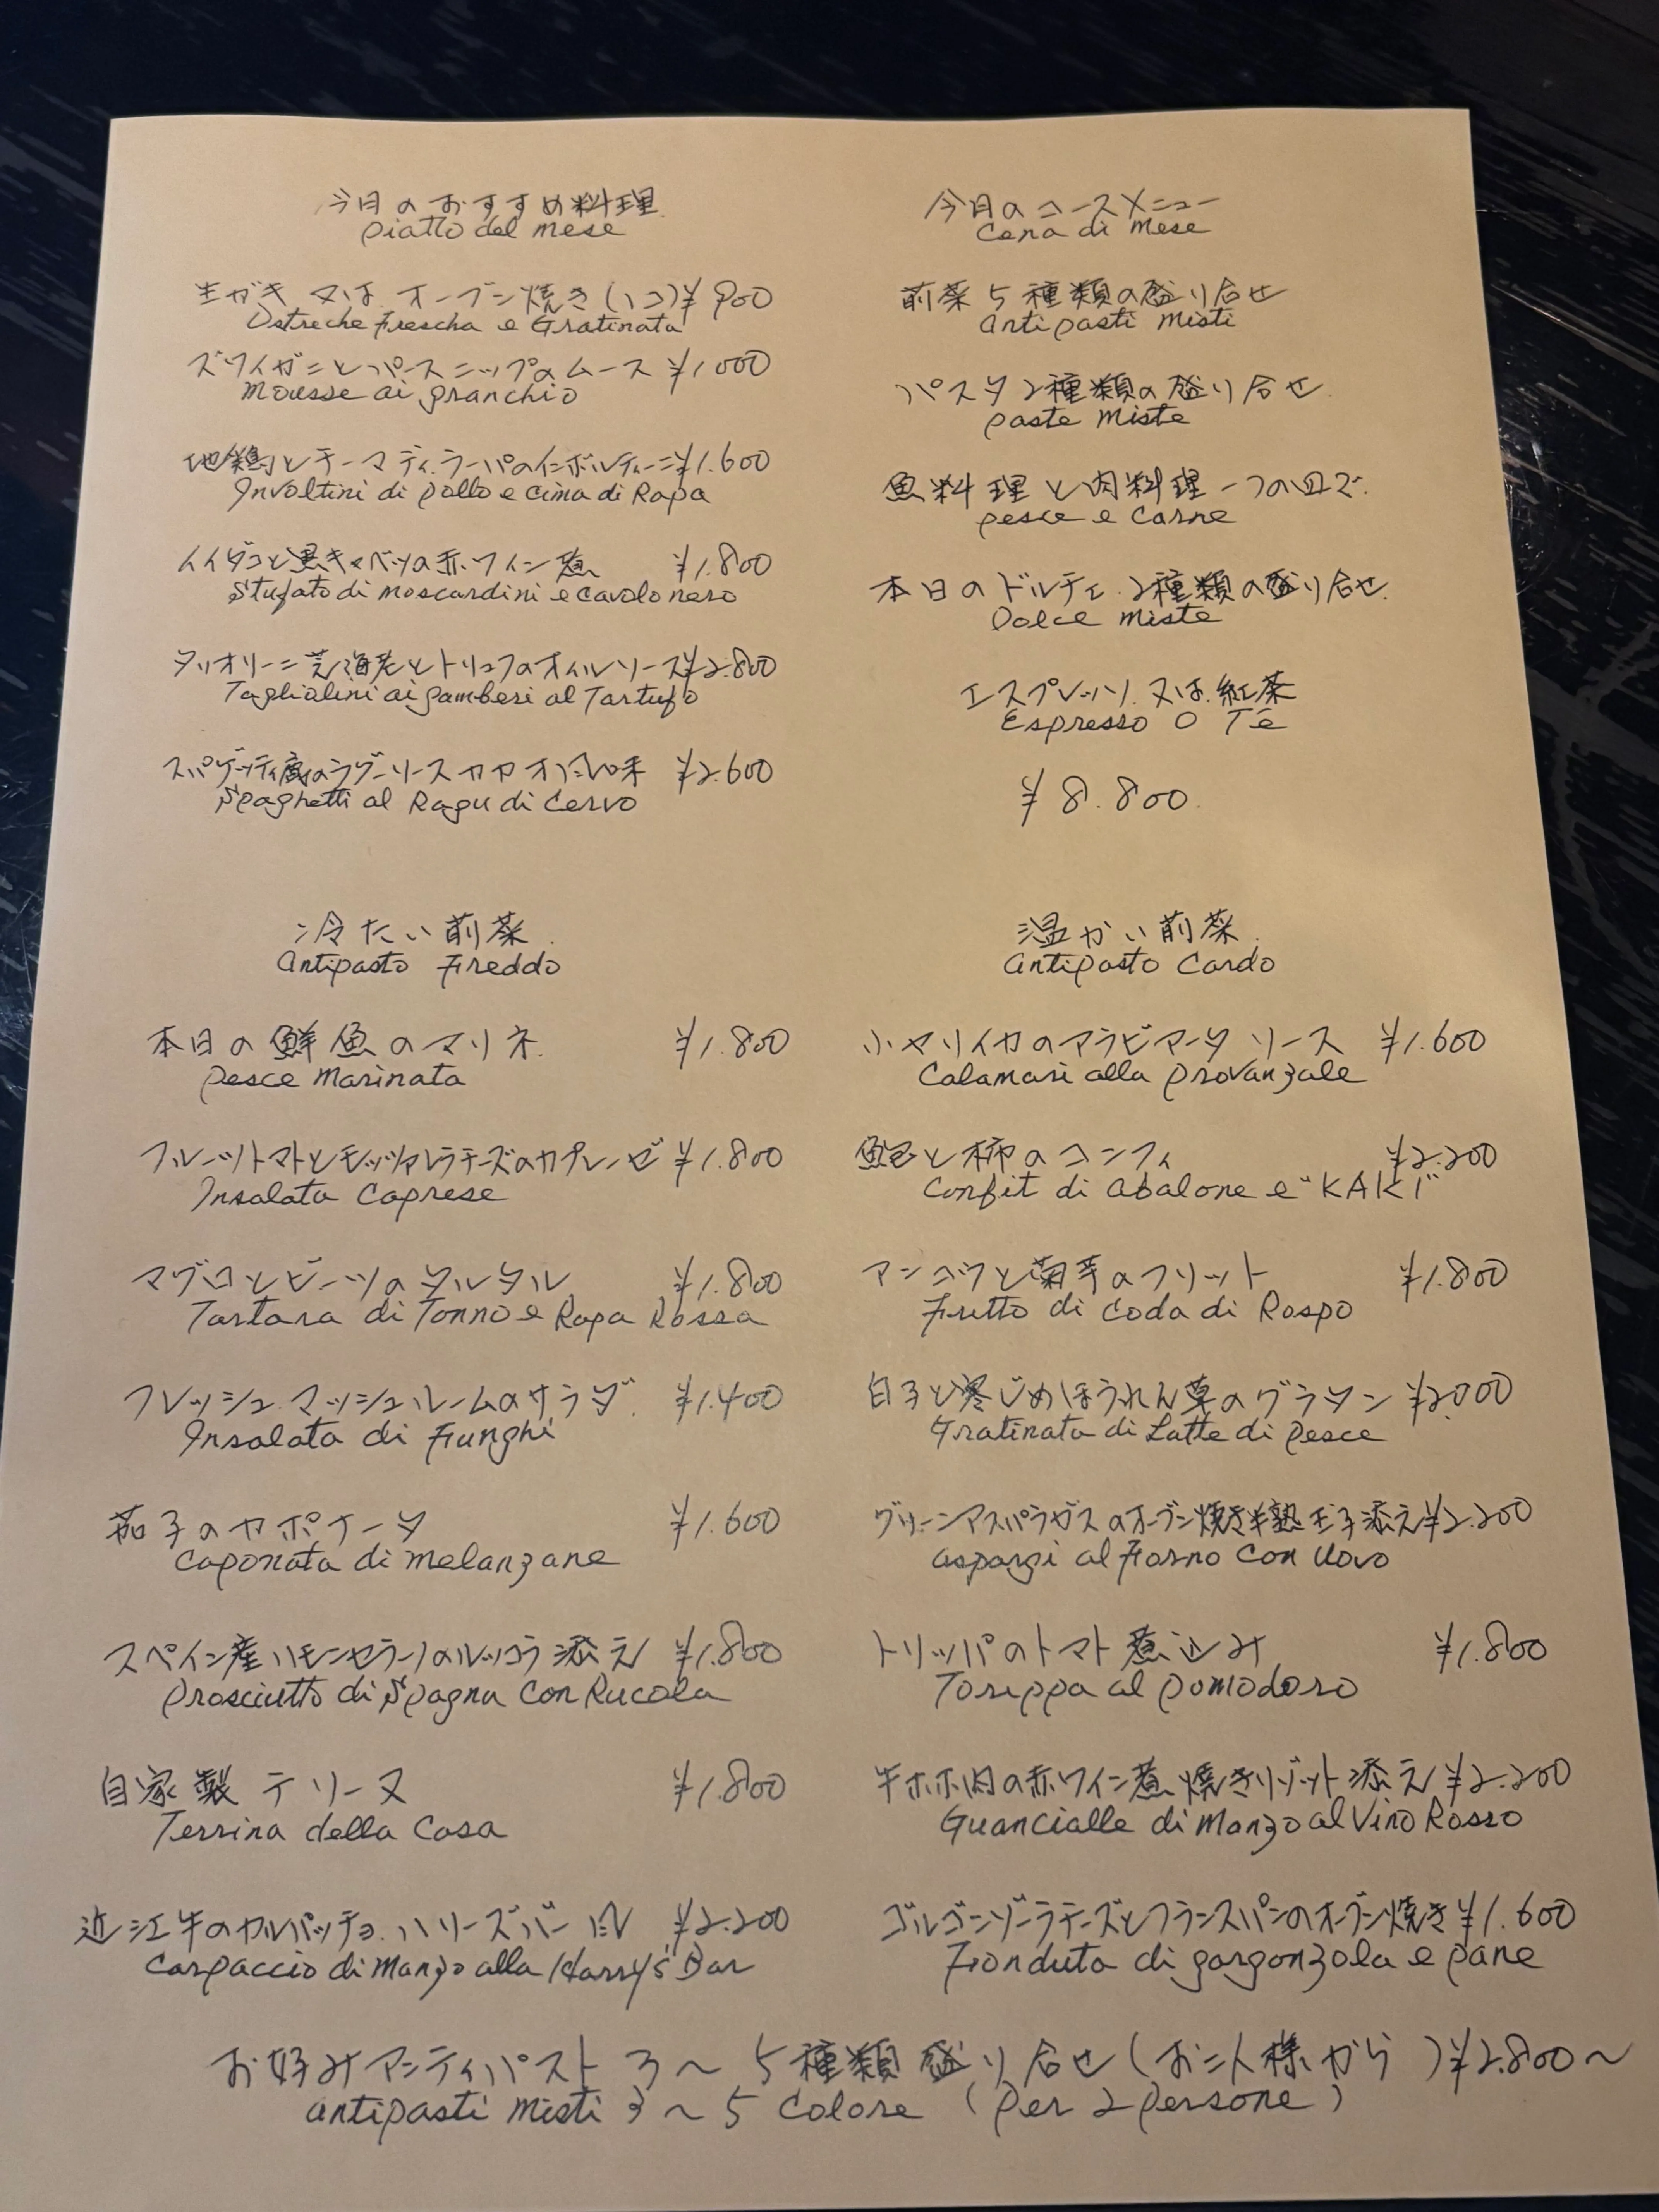 今日のおすすめ料理
piatto del mese
生ガキ 又は オーブン焼き(1コ)¥900
Ostreche Frescha e Gratinata
ズワイガニとパースニップのムース ¥1.000
Mousse ai granchio
地鶏とチーマディラーパのインボルティーニ¥1.600
Involtini di pollo e cima di Rapa
イイダコと黒キャベツの赤ワイン煮 ¥1.800
Stufato di moscardini e cavolo nero
タリオリーニ芝海老とトリュフのオイルソース¥2.800
Tagliolini ai gamberi al Tartufo
スパゲッティ鹿のラグーソースカカオ風味 ¥2.600
Spaghetti al Ragu di Cervo
今日のコースメニュー
Cena di mese
前菜5種類の盛り合せ
antipasti misti
パスタ2種類の盛り合せ
paste miste
魚料理と肉料理一つの皿で
pesce e carne
本日のドルチェ 2種類の盛り合せ
Dolce miste
エスプレッソ 又は 紅茶
Espresso O Te
¥8.800
冷たい前菜
Antipasto Freddo
本日の鮮魚のマリネ ¥1.800
pesce Marinata
フルーツトマトとモッツァレラチーズのカプレーゼ ¥1.800
Insalata Caprese
マグロとビーツのタルタル ¥1.800
Tartara di Tonno e Rapa Rossa
フレッシュ マッシュルームのサラダ ¥1.400
Insalata di Funghi
茄子のカポナータ ¥1.600
Caponata di melanzane
スペイン産ハモンセラーノのルッコラ添え ¥1.800
prosciutto di Spagna con Rucola
自家製テリーヌ ¥1.800
Terrina della Casa
近江牛のカルパッチョ ハリーズバー風 ¥2.200
Carpaccio di manzo alla Harry's Bar
温かい前菜
Antipasto Cardo
小ヤリイカのアラビアータ ソース ¥1.600
Calamari alla provanzale
鮑と柿のコンフィ ¥2.200
Confit di abalone e "KAKI"
アンコウと菊芋のフリット ¥1.800
Fritto di Coda di Rospo
白子と寒じめほうれん草のグラタン ¥2.000
Gratinata di Latte di pesce
グリーンアスパラガスのオーブン焼き半熟玉子添え¥2.200
aspargi al Forno con Uovo
トリッパのトマト煮込み ¥1.800
Torippa al pomodoro
牛ホホ肉の赤ワイン煮 焼きリゾット添え ¥2.200
Guancialle di Manzo al Vino Rosso
ゴルゴンゾーラチーズとフランスパンのオーブン焼き¥1.600
Fonduta di gorgonzola e pane
お好みアンティパスト 3〜5種類盛り合せ(お二人様から)¥2.800〜
antipasti misti 3〜5 colore (per 2 persone)